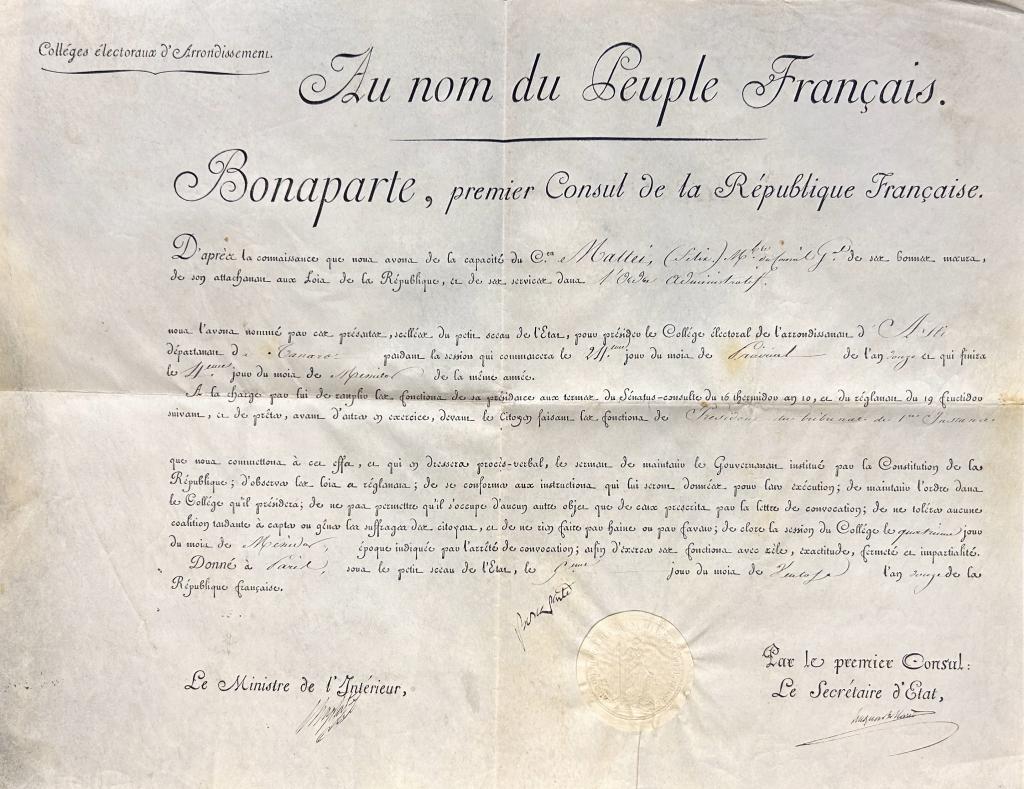 Colléges électoraux d'Arrondissement.
Au nom du Peuple Français.
Bonaparte, premier Consul de la République Française.
D'après la connaissance que nous avons de la capacité du C.en Maffei, (Félix) M.bre du Conseil G.al de ses bonnes mœurs,
de son attachement aux Lois de la République, et de ses services dans l'Ordre Administratif.
nous l'avons nommé par ces présentes, scellées du petit sceau de l'Etat, pour présider le Collége électoral de l'arrondissement d'Asti
département du Tanaro pendant la session qui commencera le 24.eme jour du mois de Prairial de l'an onze et qui finira
le 4.eme jour du mois de Messidor de la même année.
A la charge par lui de remplir les fonctions de sa présidence aux termes du Sénatus-consulte du 16 thermidor an 10, et du réglement du 19 fructidor
suivant, et de prêter, avant d'entrer en exercice, devant le Citoyen faisant les fonctions de Président du tribunal de 1ere Instance
que nous commettons à cet effet, et qui en dressera procès-verbal, le serment de maintenir le Gouvernement institué par la Constitution de la
République; d'observer les lois et réglemens; de se conformer aux instructions qui lui seront données pour leur exécution; de maintenir l'ordre dans
le Collége qu'il présidera; de ne pas permettre qu'il s'occupe d'aucun autre objet que de ceux prescrits par la lettre de convocation; de ne tolérer aucune
coalition tendante à capter ou gêner les suffrages des citoyens, et de ne rien faire par haine ou par faveur; de clore la session du Collége le quatrieme jour
du mois de Messidor, époque indiquée par l'arrêté de convocation; enfin d'exercer ses fonctions avec zèle, exactitude, fermeté et impartialité.
Donné à Paris, sous le petit sceau de l'Etat, le jour du mois de Ventose l'an onze de la
République française.
Bonaparte
Le Ministre de l'Intérieur,
Chaptal
Par le premier Consul:
Le Secrétaire d'Etat,
Hugues B. Maret